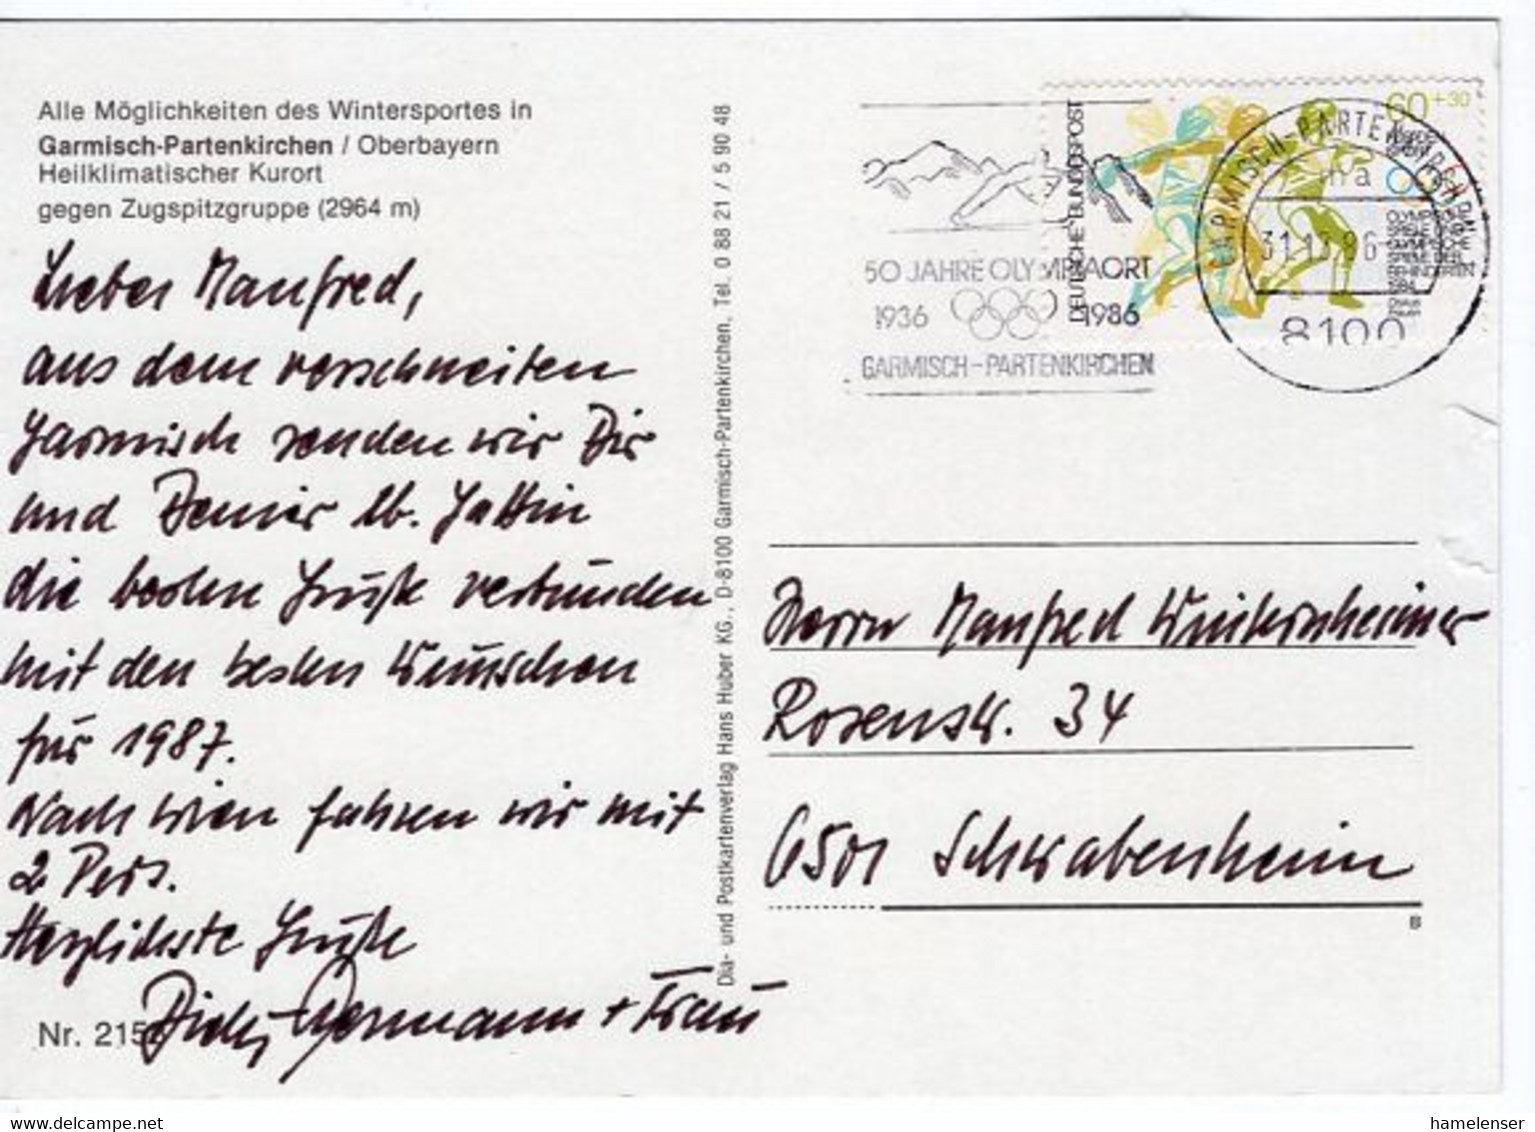 Alle Möglichkeiten des Wintersportes in
Garmisch-Partenkirchen / Oberbayern
Heilklimatischer Kurort
gegen Zugspitzgruppe (2964 m)
Lieber Manfred,
aus dem verschneiten
Garmisch senden wir Dir
und Deiner lb. Gattin
die besten Grüße verbunden
mit den besten Wünschen
für 1987.
Nach Wien fahren wir mit
2 Pers.
Herzlichste Grüße
+ Frau
Nr. 215
Dia- und Postkartenverlag Hans Huber KG., D-8100 Garmisch-Partenkirchen, Tel. 0 88 21 / 5 90 48
50 JAHRE OLYMPIAORT
1936 1986
GARMISCH-PARTENKIRCHEN
DEUTSCHE BUNDESPOST
60+30
OLYMPISCHE
SPIELE UND
OLYMPISCHE
SPIELE DER
BEHINDERTEN
1984
GARMISCH-PARTENKIRCHEN
ma
8100
Herrn Manfred Winternheimer
Rosenstr. 34
6501 Schwabenheim
B
www.delcampe.net
hamelenser